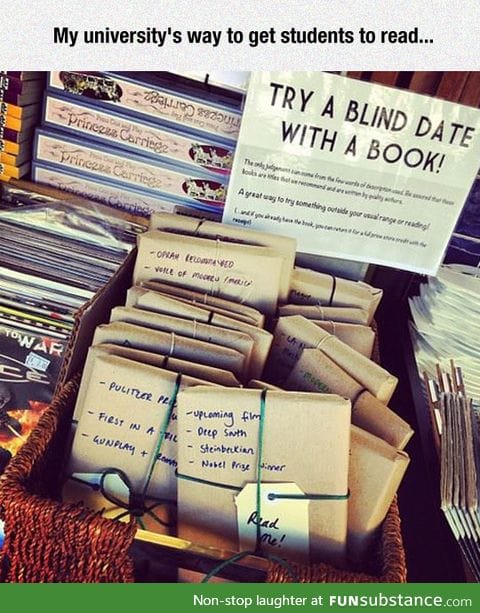 My university's way to get students to read...
Press Out and Play
Princess Carriage
Princess Carriage
Princess Carriage
Princess Carriage
TRY A BLIND DATE
WITH A BOOK!
The only judgement can come from the few words of description used. Be assured that these
books are titles that we recommend and are written by quality authors.
A great way to try something outside your usual range or reading!
(...and if you already have the book, you can return it for a full price store credit with the
receipt)
- OPRAH RECOMMENDED
- VOICE OF MODERN AMERICA
- PULITZER
- FIRST IN A
- GUNPLAY +
- upcoming film
- Deep South
- Steinbeckian
- Nobel Prize winner
Read
me!
TO WAR
Non-stop laughter at FUNsubstance.com